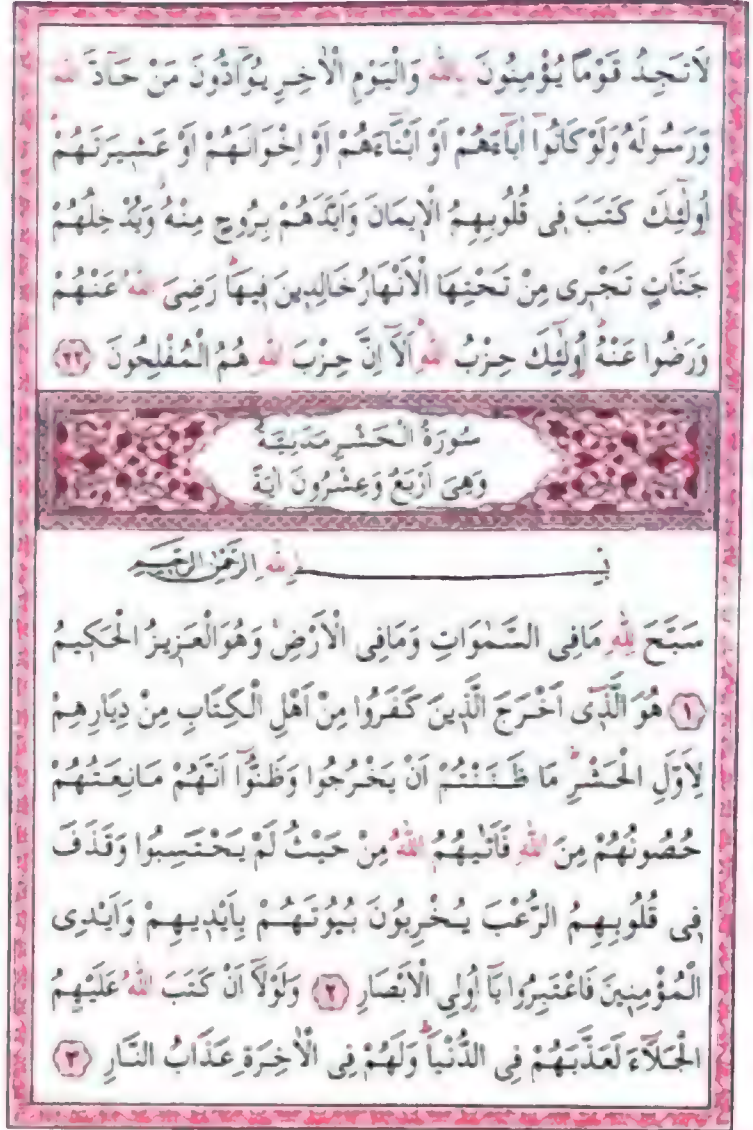 لَا تَجِدُ قَوْمًا يُؤْمِنُونَ بِاللّٰهِ وَالْيَوْمِ الْاٰخِرِ يُوَٓادُّونَ مَنْ حَٓادَّ اللّٰهَ
وَرَسُولَهُ وَلَوْ كَانُٓوا اٰبَٓاءَهُمْ اَوْ اَبْنَٓاءَهُمْ اَوْ اِخْوَانَهُمْ اَوْ عَشٖيرَتَهُمْ
اُولٰٓئِكَ كَتَبَ فٖى قُلُوبِهِمُ الْاٖيمَانَ وَاَيَّدَهُمْ بِرُوحٍ مِنْهُ وَيُدْخِلُهُمْ
جَنَّاتٍ تَجْرٖى مِنْ تَحْتِهَا الْاَنْهَارُ خَالِدٖينَ فٖيهَا رَضِىَ اللّٰهُ عَنْهُمْ
وَرَضُوا عَنْهُ اُولٰٓئِكَ حِزْبُ اللّٰهِ اَلَٓا اِنَّ حِزْبَ اللّٰهِ هُمُ الْمُفْلِحُونَ ﴿٢٢﴾
سُورَةُ الْحَشْرِ مَدَنِيَّةٌ
وَهِىَ اَرْبَعٌ وَعِشْرُونَ اٰيَةً
بِسْمِ اللّٰهِ الرَّحْمٰنِ الرَّحٖيمِ
سَبَّحَ لِلّٰهِ مَا فِى السَّمٰوَاتِ وَمَا فِى الْاَرْضِ وَهُوَ الْعَزٖيزُ الْحَكٖيمُ
﴿١﴾ هُوَ الَّذٖٓى اَخْرَجَ الَّذٖينَ كَفَرُوا مِنْ اَهْلِ الْكِتَابِ مِنْ دِيَارِهِمْ
لِاَوَّلِ الْحَشْرِ مَا ظَنَنْتُمْ اَنْ يَخْرُجُوا وَظَنُّٓوا اَنَّهُمْ مَانِعَتُهُمْ
حُصُونُهُمْ مِنَ اللّٰهِ فَاَتٰيهُمُ اللّٰهُ مِنْ حَيْثُ لَمْ يَحْتَسِبُوا وَقَذَفَ
فٖى قُلُوبِهِمُ الرُّعْبَ يُخْرِبُونَ بُيُوتَهُمْ بِاَيْدٖيهِمْ وَاَيْدِى
الْمُؤْمِنٖينَ فَاعْتَبِرُوا يَٓا اُولِى الْاَبْصَارِ ﴿٢﴾ وَلَوْلَٓا اَنْ كَتَبَ اللّٰهُ عَلَيْهِمُ
الْجَلَٓاءَ لَعَذَّبَهُمْ فِى الدُّنْيَا وَلَهُمْ فِى الْاٰخِرَةِ عَذَابُ النَّارِ ﴿٣﴾